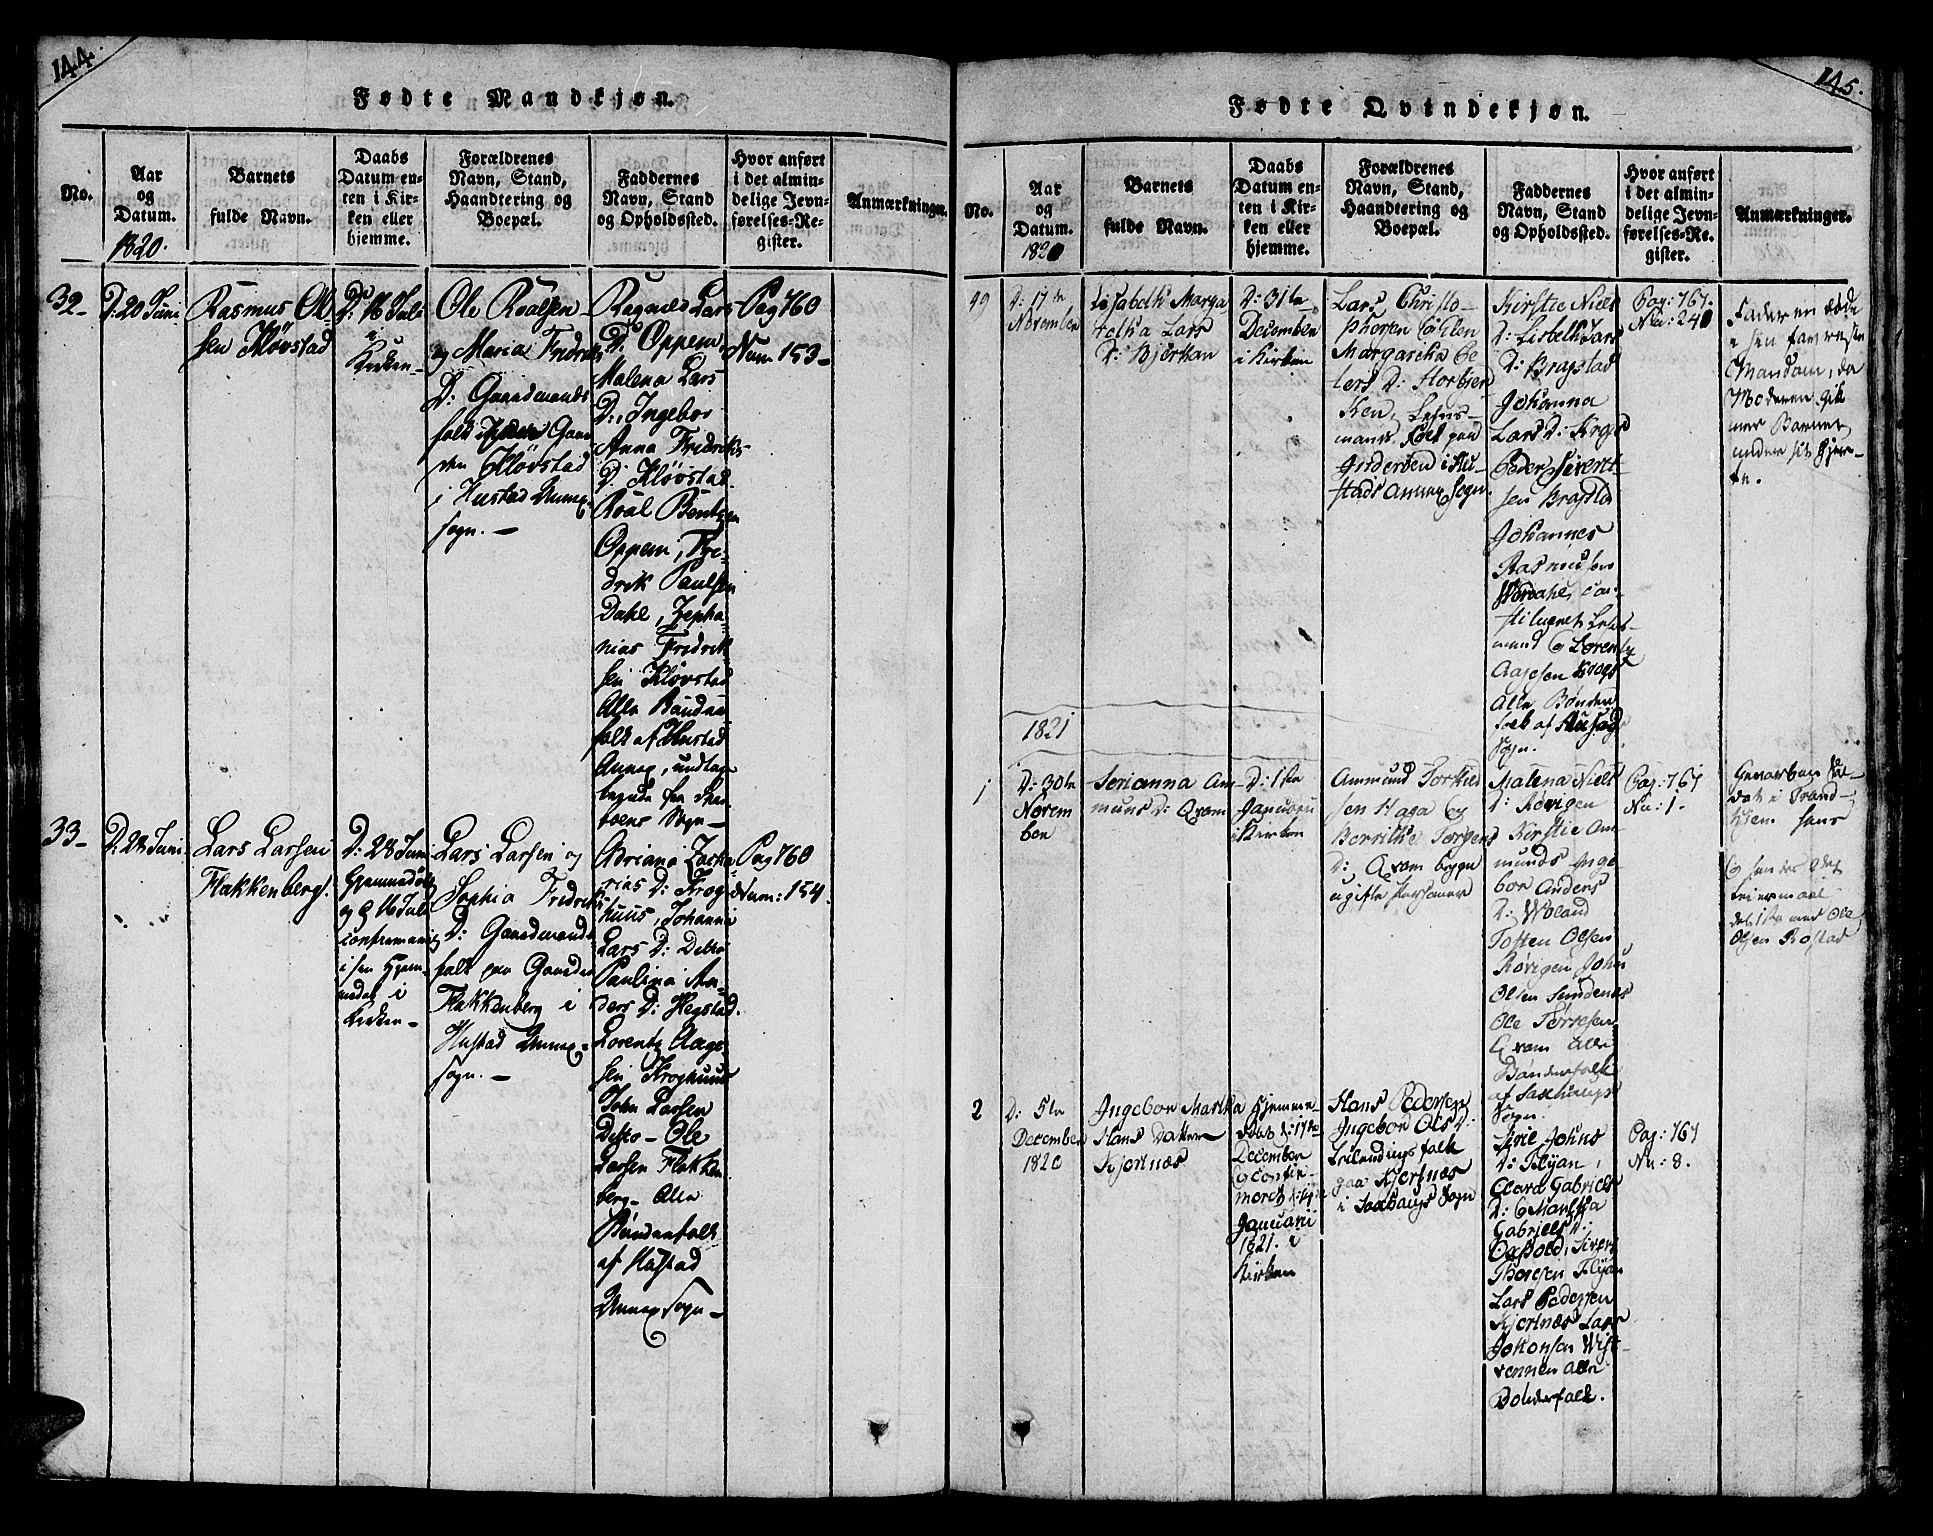 144.
Fødte Mandkjøn.
No.
Aar
og
Datum.
1820.
Barnets
fulde Navn.
Daabs
Datum en-
ten i Kir-
ken eller
hjemme.
Forældrenes
Navn, Stand,
Haandtering og
Boepæl.
Faddernes
Navn, Stand
og Opholdssted.
Hvor anført
i det almin-
delige Jevn-
førelses-Re-
gister.
Anmærkninger.
32-
D: 20 Juni
Rasmus Ol
sen Kløvstad
D: 16 Juli
i
Kirken-
Ole Roalsen
og Maria Fredriks
D: Gaardmands
folk Gaar
den Kløvstad
i Hustad Annex
sogn. -
Lars
D: Oppem,
Malena Lars
D: Ingebor
Anna Fredriks
D: Kløvstad.
Roal Bentsen
Oppem, Fre-
drik Paulsen
Dahl, Zepha-
nias Fredrik
sen Kløvstad
Alle Bønder
folk af Hustad
Annex, undtagen
Sogn-
Pag 760
Num: 153-
33-
D: 24 Juni
Lars Larsen
Flakkenberg.
D: 28 Juni
Hjemmedøbt
og D 16 Juli
i sen Hjem-
medøb i
Kirken-
Lars Larsen og
Sophia Fredriks
D: Gaardmands
folk paa Gaarden
Flakkenberg i
Hustad Annex-
sogn. -
Adriana Zacha
rias D: Krog
huus, Johanna
Lars D: Detto
Paulina An-
ders D: Hegstad.
Lorentz Aage-
sen Kroghuus
John Larsen
Detto - Ole
Larsen Flakken
berg- Alle
Bønderfolk
af Hustad
Annex sogn-
Pag 760
Num: 154.
145.
Fødte Qvindekjøn.
No.
Aar
og
Datum.
1820
Barnets
fulde Navn.
Daabs
Datum en-
ten i Kir-
ken eller
hjemme.
Forældrenes
Navn, Stand,
Haandtering og
Boepæl.
Faddernes
Navn, Stand
og Opholdssted.
Hvor anført
i det almin-
delige Jevn-
førelses-Re-
gister.
Anmærkninger.
49
D: 17te
November
Lisabeth Marga
retha Lars
D: Bjerkan
D: 31te
December
i Kirken
Lars Christo-
phersen Cøhlen
Margaretha Pe
ters D: Storbier
ken, Lehns-
mands Folk paa
i Hu-
stads Annex Sogn.
Kirstie Niels
D: Lisbeth Lars
D: Bragstad
Johanna
Lars D: Krogs
Peder Sivert
sen Bragstad
Johannes
Rasmussen
con-
stitueret Lens-
mand og Lorentz
Aagesen Krogs
Alle Bønder
folk af Husta
Sogn.
Pag: 767.
Nu: 240
Fader en Ædde
i sin første
Mandom, da
Moderen gik
med Barnet
under sit Hjer-
te.
1821
1
D: 30te
Novem
ber
Serianna Am-
munds D: Qvam
D: 1ste
Januari
i Kirken
Ammund Torkild
sen Haga og
Berrithe Jørgens
D: Qvam begge
ugifte Personer
Malena Niels
D: Røvigen
Kirstie Am-
munds Inge
bor Anders
D: Woland
Tosten Olsen
Røvigen John
Olsen Sundnes
Ole Torresen
Qvam Alle
Bønderfolk
af Saxhaugs
Sogn.
Pag: 767
Nu: 1.
Gevorben Sol-
dat i Trond-
hiem. hans
og hendes 2det
leiermaal
det 1ste med Ole
Olsen Rostad
2
D: 5te
December
1820
Ingebor Martha
Hans Datter
Kjertnæs
Hjemme
døbt d: 17de
December
og confir-
meret d: 14de
Januari
1821. i
Kirken
Hans Pedersen
Ingebor Ols D:
Leilendings folk
paa Kjertnæs
i Saxhaugs Sogn
Siril Johns
D: Flyan,
Clara Gabriels
D: og Martha
Gabriels D:
Oxbold, Siver
Thoresen Flyan
Lars Pedersen
Kjertnæs Lars
Johansen Wist-
vennen alle
Bønderfolk.
Pag: 767
Nu: 8.